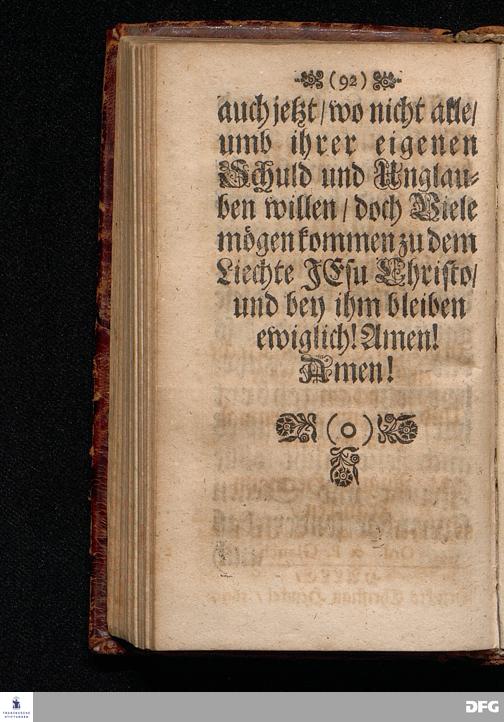 (92)
auch jetzt / wo nicht alle /
umb ihrer eigenen
Schuld und Unglau-
ben willen / doch Viele
mögen kommen zu dem
Liechte JEsu Christo /
und bey ihm bleiben
ewiglich! Amen!
Amen!
(o)
FRANCKESCHE
STIFTUNGEN
DFG